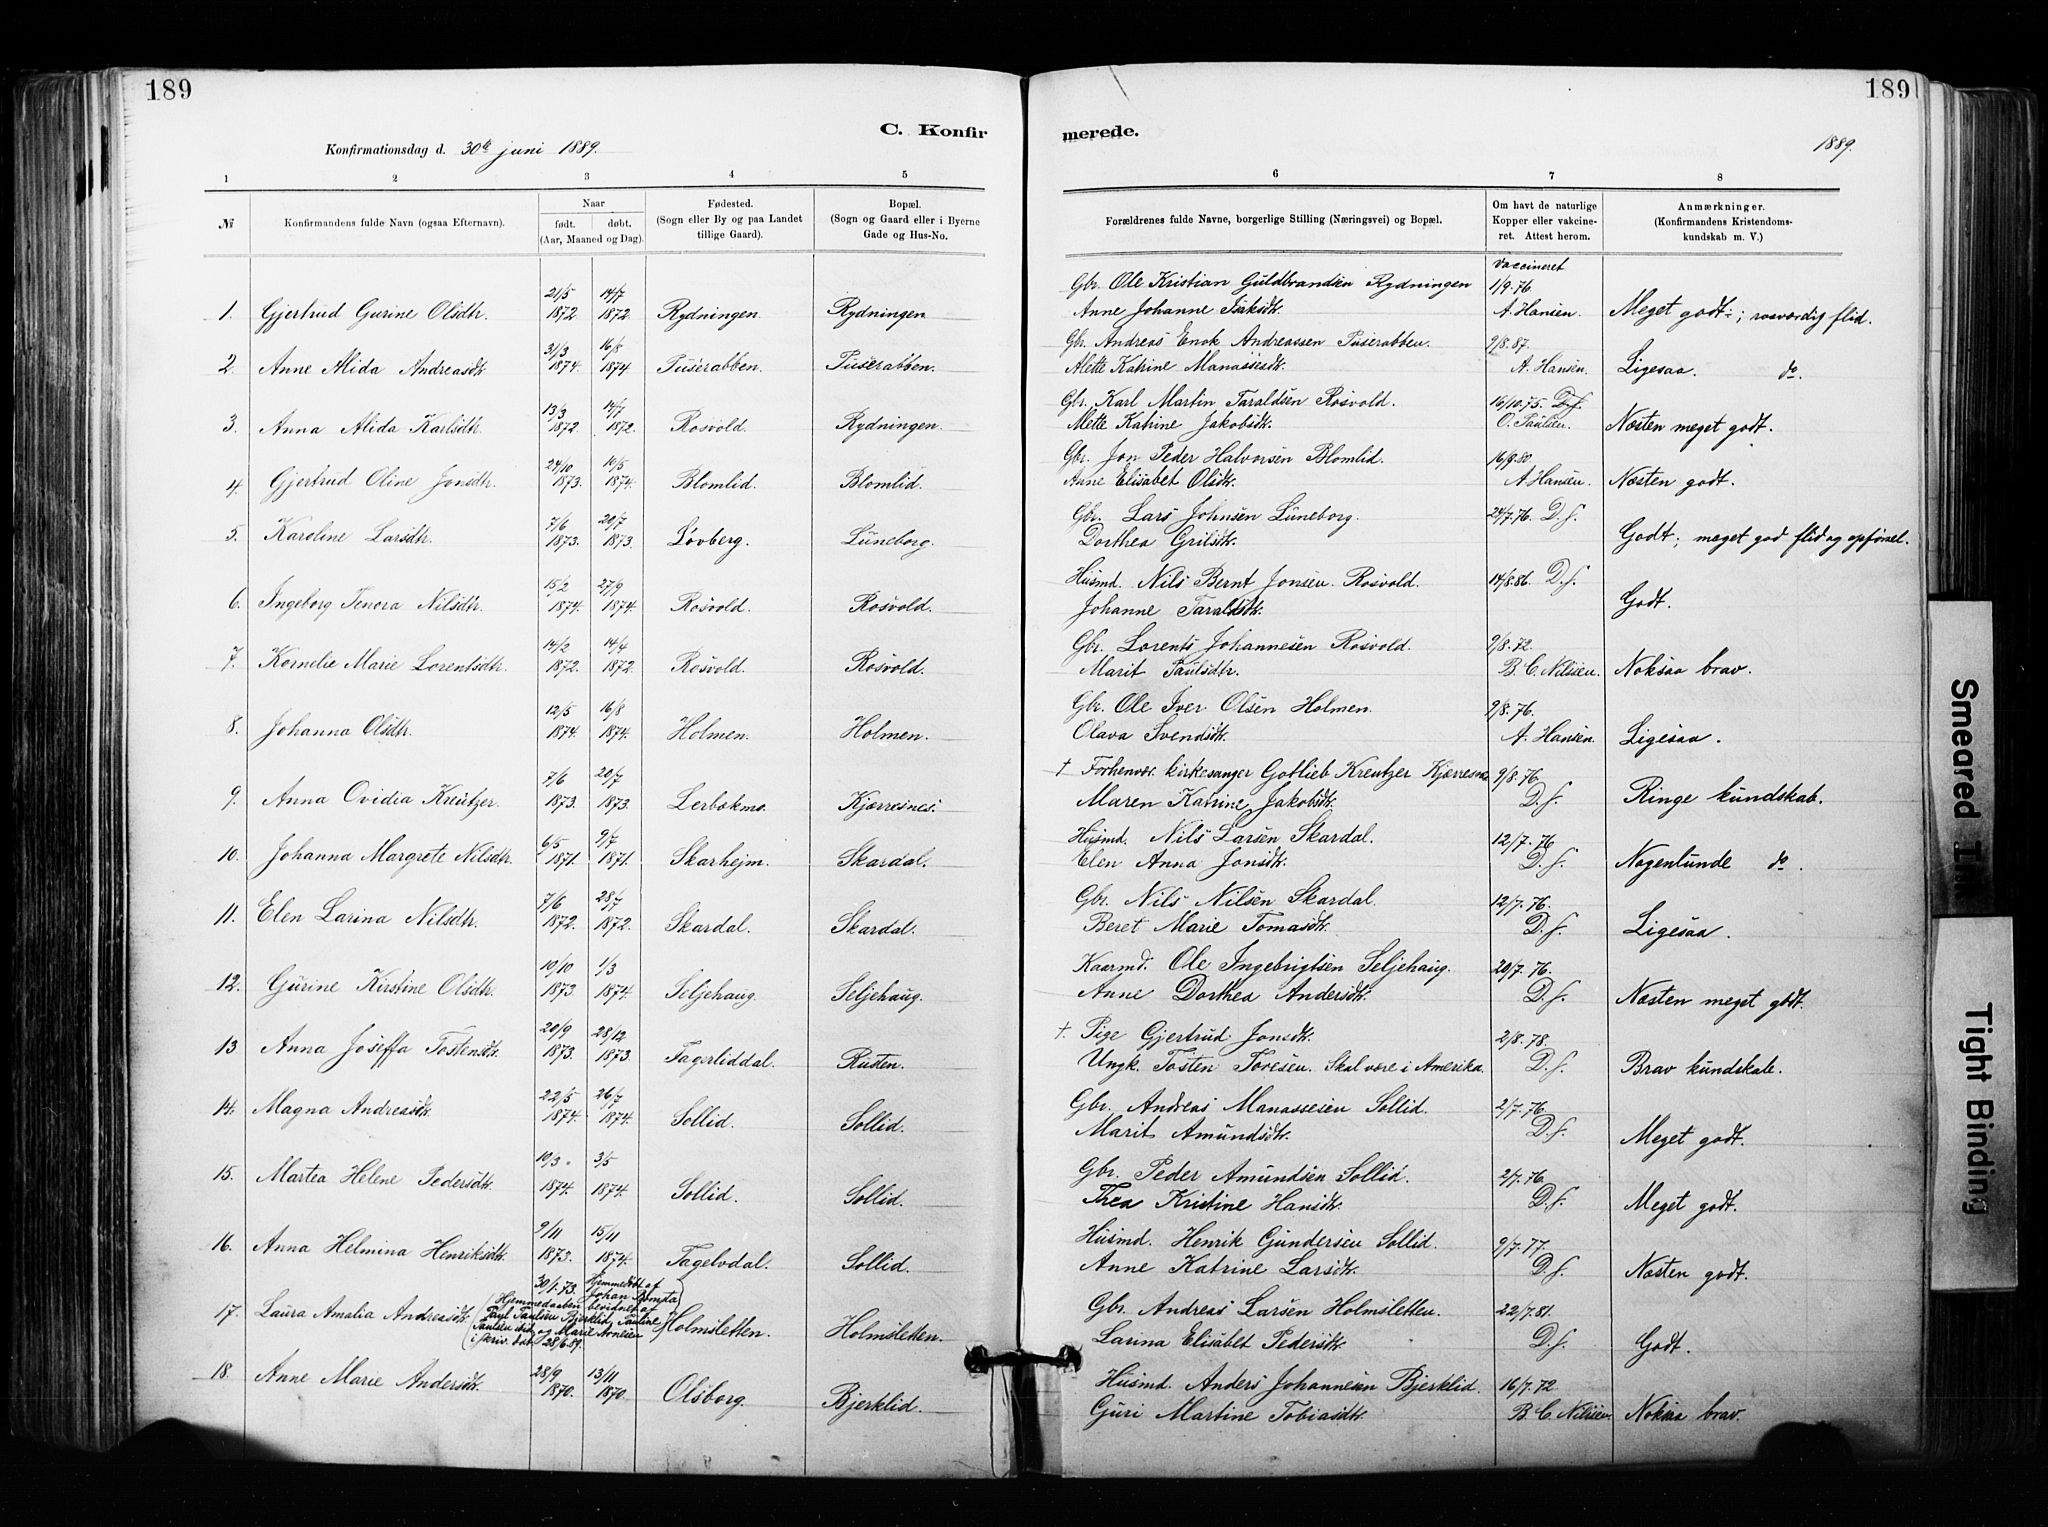 189
189
C. Konfir
merede.
Konfirmationsdag d. 30te juni 1889.
1889.
1 2 3 4 5 6 7 8
№
Konfirmandens fulde Navn (ogsaa Efternavn).
Naar
født. døbt.
(Aar, Maaned og Dag).
Fødested.
(Sogn eller By og paa Landet
tillige Gaard).
Bopæl.
(Sogn og Gaard eller i Byerne
Gade og Hus-No.
Forældrenes fulde Navne, borgerlige Stilling (Næringsvei) og Bopæl.
Om havt de naturlige
Kopper eller vakcine-
ret. Attest herom.
Anmærkninger.
(Konfirmandens Kristendoms-
kundskab m. V.)
vaccineret
21/5 14/7 Gbr. Ole Kristian Guldbrandsen Rydningen 1/9.76
1. Gjertrud Gurine Olsdtr. 1872 1872. Rydningen Rydningen Anne Johanne Isaksdtr. A. Hansen. Meget godt; rosværdig flid.
31/3 16/8 Gbr. Andreas Enok Andreassen Tuserabben. 9/8.87.
2. Anne Alida Andreasdtr 1874. 1874 Tuserabben. Tuserabben. Alette Katrine Manassesdtr. A. Hansen Ligesaa. do.
13/3 14/7 Gbr. Karl Martin Taraldsen Rosvold. 16/10.75. D.f.
3. Anna Alida Karlsdtr. 1872. 1872. Rosvold. Rydningen. Mette Katrine Jakobsdtr. O. Paulsen. Næsten meget godt.
24/10 10/5 Gbr. Jon Peder Halvorsen Blomlid. 16/9.80
4. Gjertrud Oline Jonsdtr. 1873. 1874. Blomlid. Blomlid. Anne Elisabet Olsdtr. A Hansen. Næsten godt.
7/6 20/7 Gbr. Lars Johnsen Lüneborg. 24/7.76. D.f.
5. Karoline Larsdtr. 1873. 1873. Løvberg. Lüneborg. Dorthea Grilsdtr. Godt; meget god flid og opførsel.
15/2 27/9 Husmd. Nils Bernt Jonsen Rosvold. 14/8.86. D.f.
6. Ingeborg Tenora Nilsdtr. 1874. 1874. Rosvold. Rosvold. Johanne Taraldsdtr. Godt.
14/2 14/4 Gbr. Lorents Johannesen Rosvold. 9/8.72.
7. Kornelie Marie Lorentsdtr. 1872 1872. Rosvold. Rosvold. Marit Paulsdtr. B. C. Nilsen. Noksaa brav.
12/5 16/8 Gbr. Ole Iver Olsen Holmen. 9/8.76.
8. Johanna Olsdtr. 1874. 1874. Holmen. Holmen. Olava Svendsdtr. A. Hansen. Ligesaa.
7/6 20/7 † Forhenvær. kirkesanger Gotlieb Kreutzer Kjærresnes 9/8.76.
9. Anna Ovidia Kreutzer. 1873. 1873. Lerbækmo. Kjærresnes. Maren Katrine Jakobsdtr. D.f. Ringe kundskab.
6/5 9/7 Husmd. Nils Larsen Skardal. 12/7.76
10. Johanna Margrete Nilsdtr. 1871. 1871. Skarhejm. Skardal. Elen Anna Jonsdtr. D.f. Nogenlunde do.
7/6 28/7 Gbr. Nils Nilsen Skardal. 12/7.76.
11. Elen Larina Nilsdtr. 1872. 1872. Skardal. Skardal. Beret Marie Tomasdtr. D.f. Ligesaa.
10/10 1/3 Kaarmd. Ole Ingebrigtsen Seljehaug. 20/7.76.
12. Gurine Kirstine Olsdtr. 1873. 1874. Seljehaug. Seljehaug. Anne Dorthea Andersdtr. D.f. Næsten meget godt.
20/9 28/12 † Pige Gjertrud Jonsdtr. 2/8.78.
13. Anna Joseffa Tostensdtr. 1873. 1873. Fagerliddal. Rusten. Ungk. Tosten Toresen. Skal være i Amerika. D.f. Brav kundskab.
22/5 26/7 Gbr. Andreas Manassesen Sollid. 2/7.76
14. Magna Andreasdtr. 1874. 1874. Sollid. Sollid. Marit Amundsdtr. D.f. Meget godt.
10/3 3/5 Gbr. Peder Amundsen Sollid. 2/7.76.
15. Martea Helene Pedersdtr. 1874. 1874. Sollid. Sollid. Thea Kristine Hansdtr. D.f. Meget godt.
9/11 15/11 Husmd. Henrik Gundersen Sollid. 9/7.77.
16. Anna Helmina Henriksdtr. 1873. 1874. Fagelvdal. Sollid. Anne Katrine Larsdtr. D.f. Næsten godt.
30/1.73. Hjemmedøbt af Johan Bomsta Gbr. Andreas Larsen Holmsletten. 22/7.81
17. Laura Amalia Andreasdtr. (Hjemmedaaben bevidnet af Paul Paulsen Bjerklid, Pauline Paulsen ibid. og Marie Arnesen i skriv. dat. 28/6.89.) Holmsletten. Holmsletten. Larina Elisabet Pedersdtr. D.f. Godt.
28/9 13/11 Husmd. Anders Johannesen Bjerklid. 16/7.72
18. Anne Marie Andersdtr. 1870. 1870. Olsborg. Bjerklid. Guri Martine Tobiasdtr. B. C. Nilsen. Noksaa brav.
Smeared Ink
Tight Binding